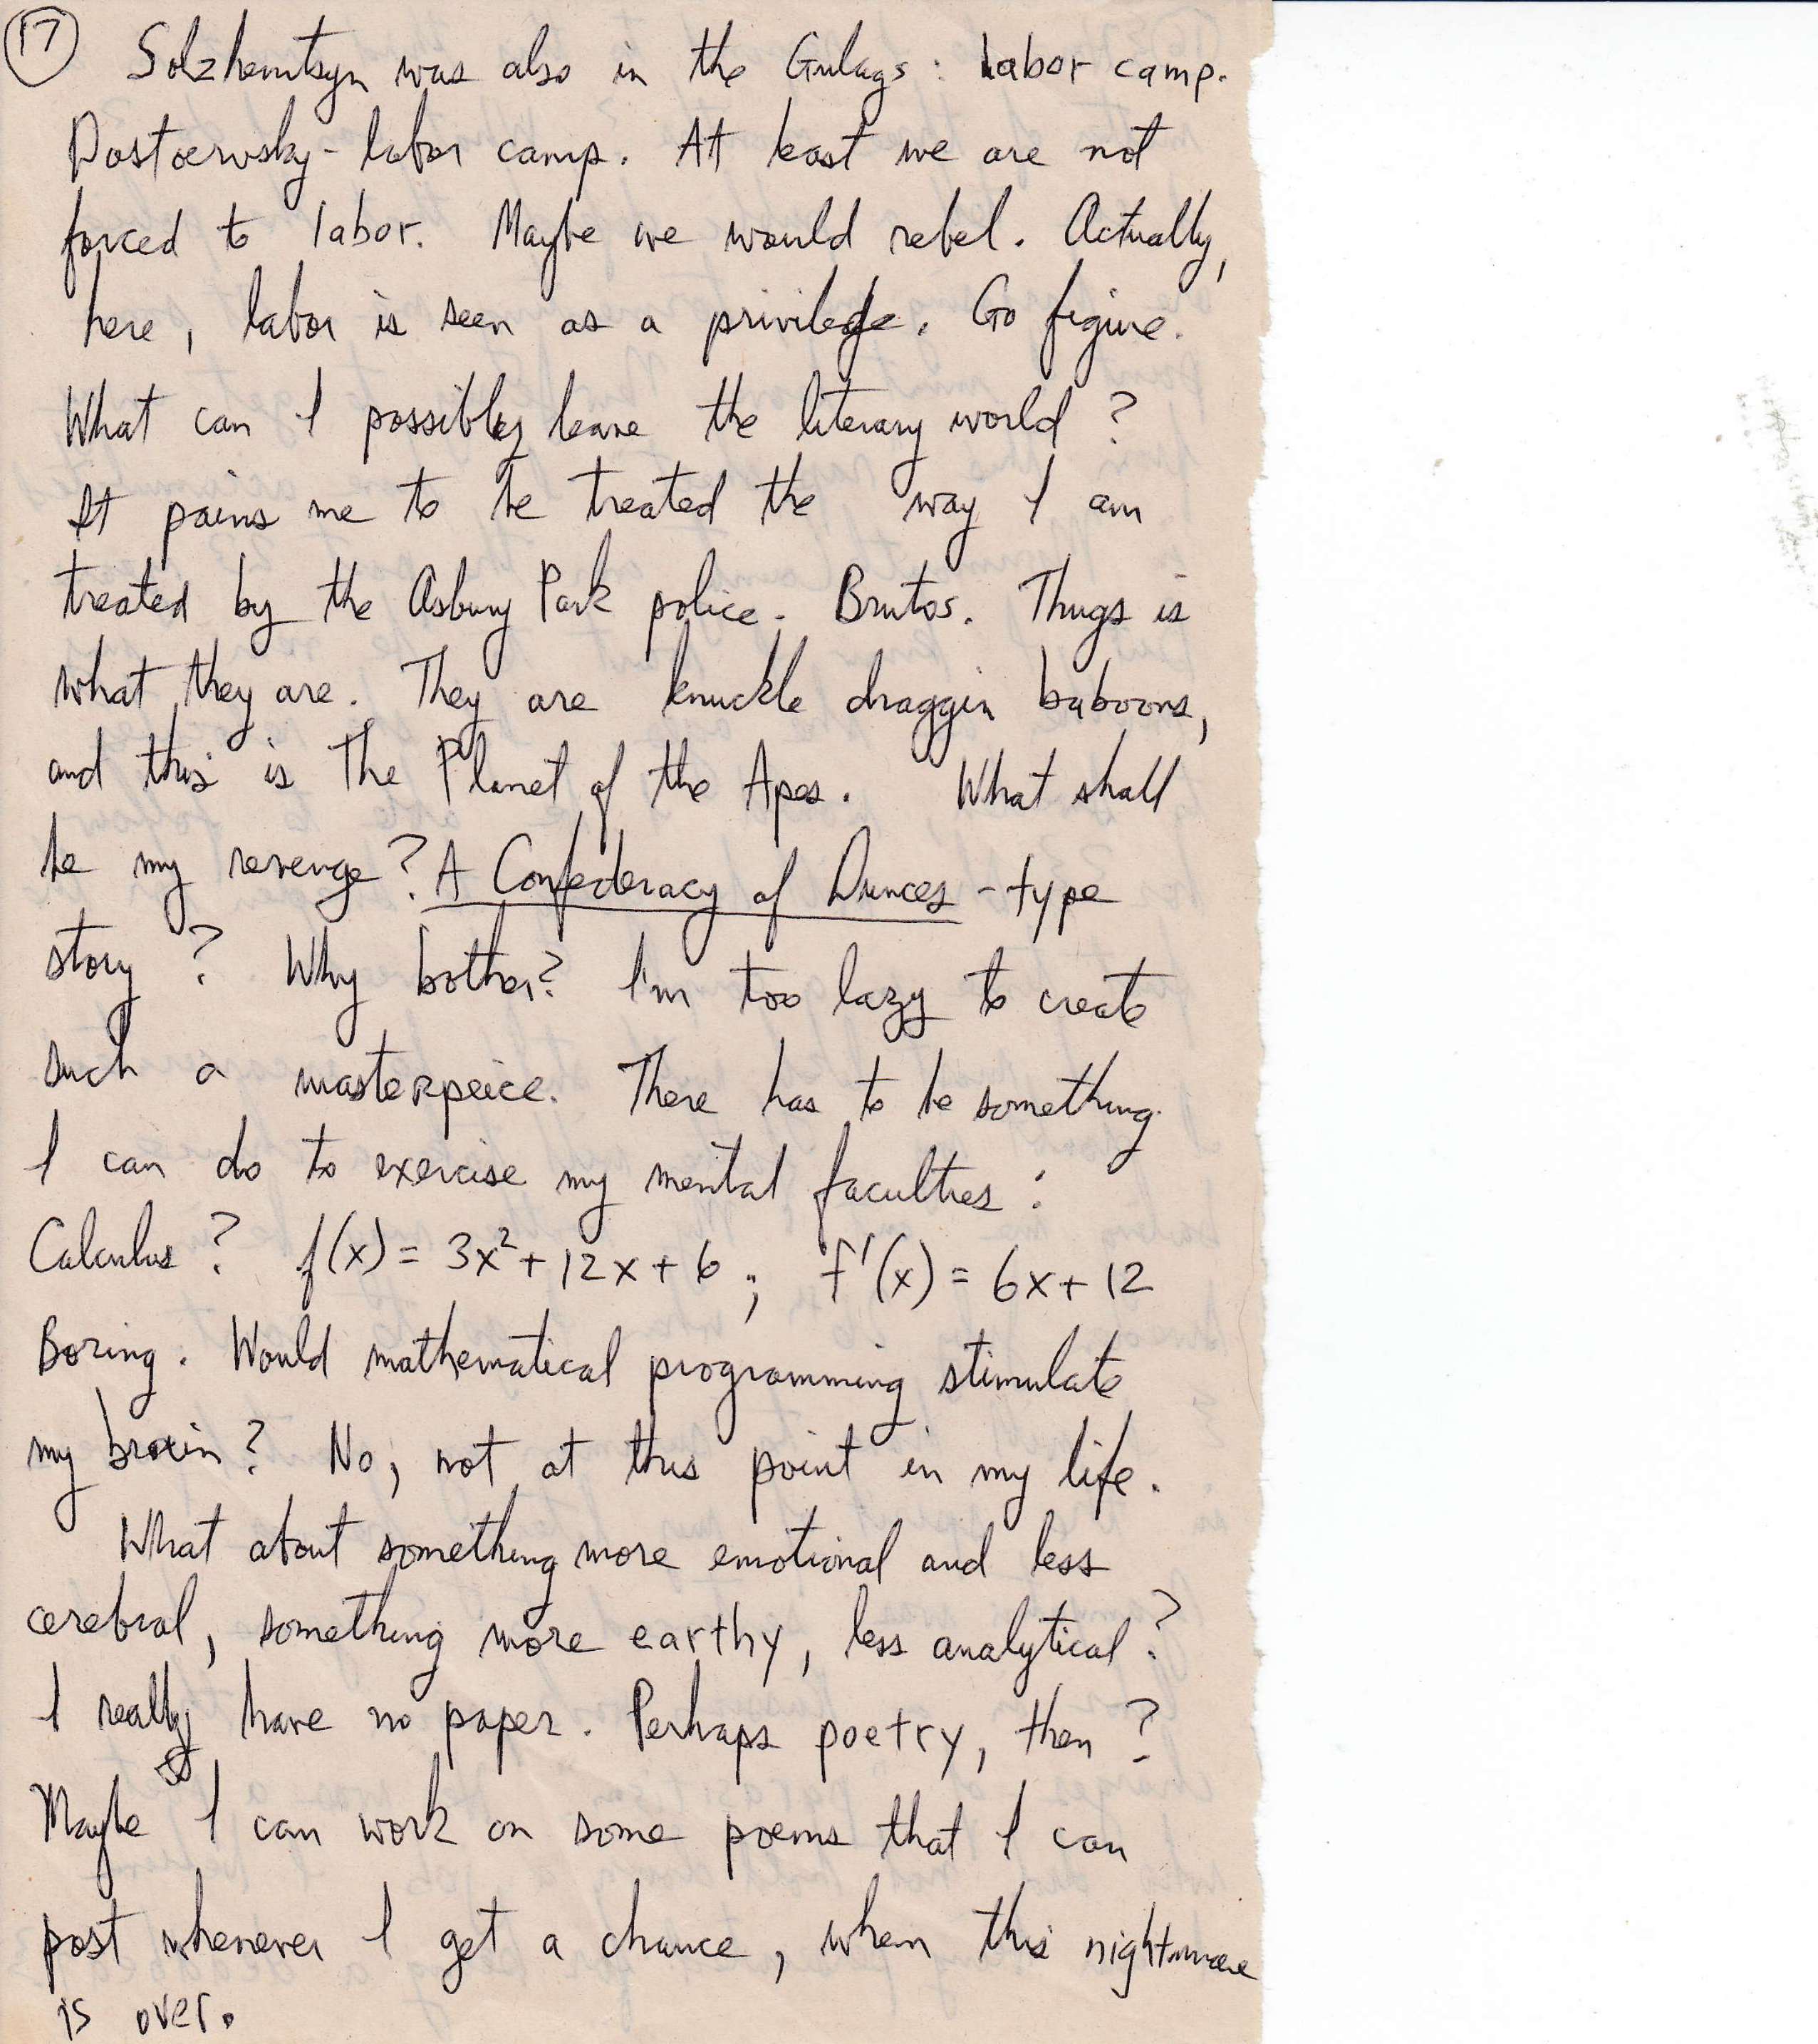 17
Solzhenitsyn was also in the Gulags: labor camp.
Dostoevsky - labor camp. At least we are not
forced to labor. Maybe we would rebel. Actually,
here, labor is seen as a privilege. Go figure.
What can I possibly leave the literary world?
It pains me to be treated the way I am
treated by the Asbury Park police. Brutos. Thugs is
what they are. They are knuckle draggin baboons,
and this is The Planet of the Apes. What shall
be my revenge? A Confederacy of Dunces - type
story? Why bother? I'm too lazy to create
such a masterpeice. There has to be something
I can do to exercise my mental faculties:
Calculus? f(x) = 3x²+12x+6; f'(x) = 6x+12
Boring. Would mathematical programming stimulate
my brain? No, not at this point in my life.
What about something more emotional and less
cerebral, something more earthy, less analytical?
I really have no paper. Perhaps poetry, then?
Maybe I can work on some poems that I can
post whenever I get a chance, when this nightmare
is over.